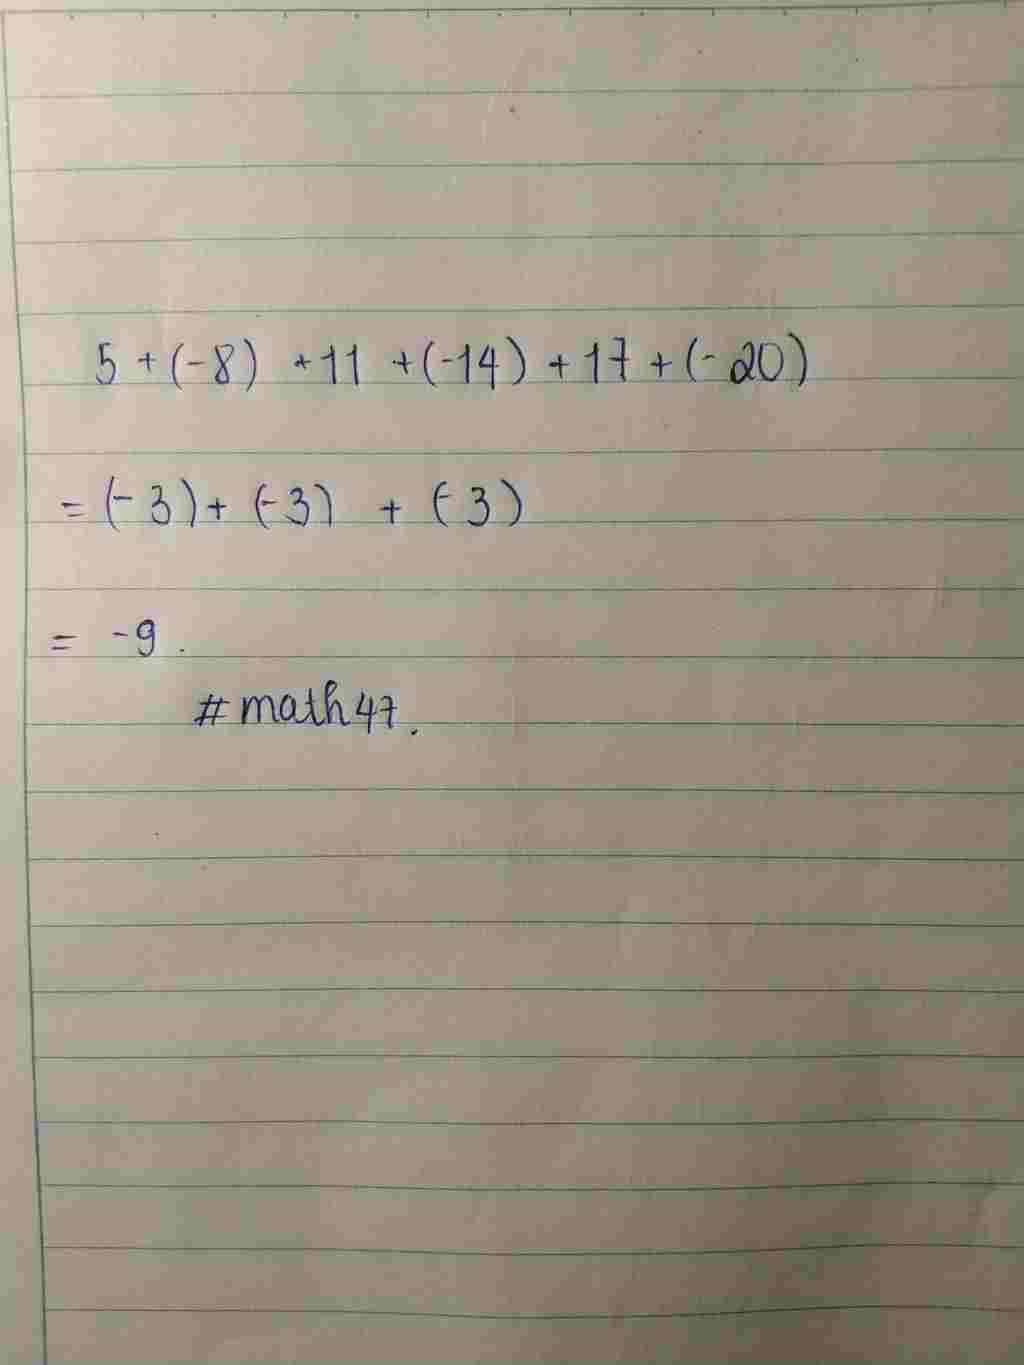 5 + (-8) + 11 + (-14) + 17 + (-20)
= (-3) + (-3) + (-3)
= -9.
#math47.